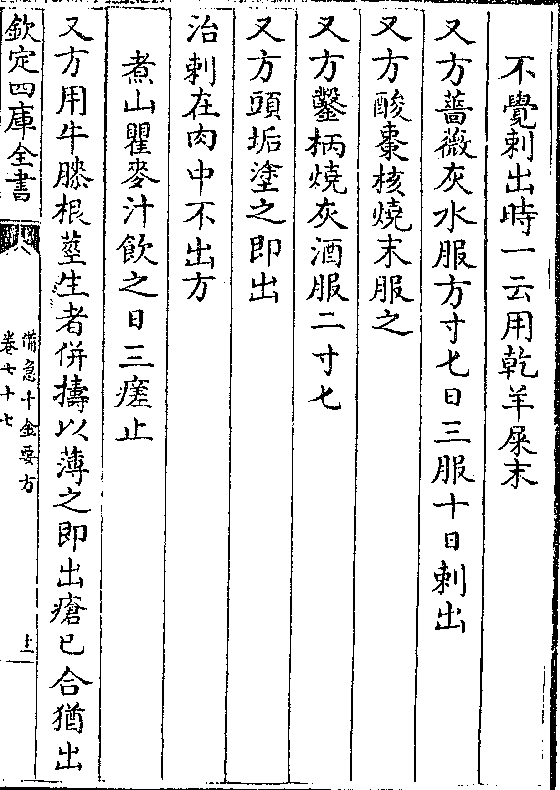 不覺刺出時一云用乾羊屎末
又方薔薇灰水服方寸匕日三服十日刺出
又方酸棗核燒末服之
又方鑿柄燒灰酒服二寸匕
又方頭垢塗之即出
治刺在肉中不出方
煮山瞿麥汁飲之日三瘥止
又方用牛膝根莖生者併擣以薄之即出瘡已合猶出
欽定四庫全書
備急千金要方
卷七十七